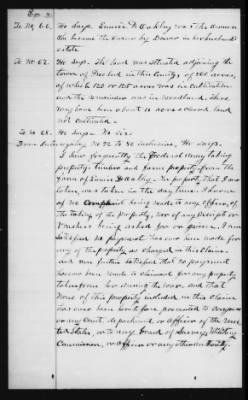 To No 66. He says. Louisa P. Oakley was the owner
she became the owner by Dower in her husbands
estate
To No 67. He says. The land was situated adjoining the
town of in this County, of 200 acres,
of which 125 acres was in cultivation
and the remainder was in woodland. There
may have been about 10 acres cleared land
not cultivated.
To No 68. He says. No sir.
From Interrogatory No 72 to 80 inclusive, He says.
I saw frequently the Federal army taking
property, timber and farm property from the
farm of The property, that I saw
taken, was taken in the day time. I know
of no Complaint being made to any officer, of
the taking of the property, nor of any Receipt or
Vouchers being asked for or given. I am
satisfied no payment has ever been made for
any of the property as charged in this Claim,
and am further satisfied that no payment
has ever been made to Claimant for any property
taken from her during the war and that
None of this property included in this Claim
has ever been heretofore presented to Congress
or any Court, department or Officer of the Uni-
ted States, or to any board of Survey, Military
Commission, or officer or any other authority.